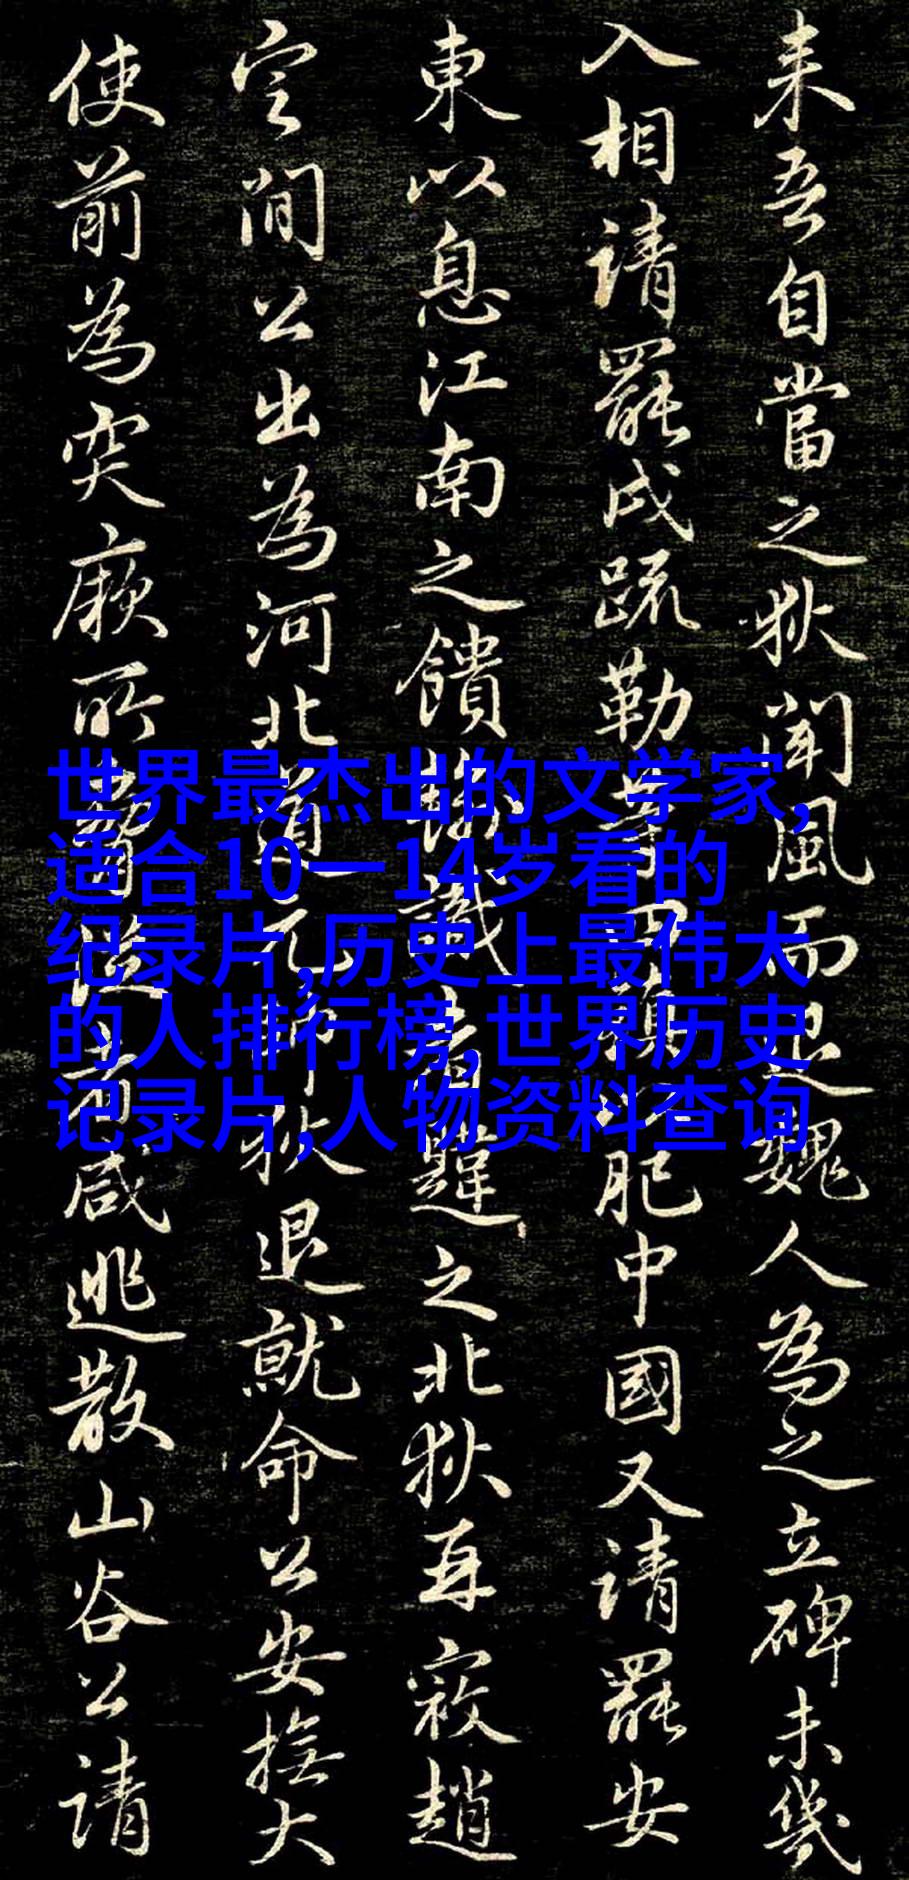 来吾自當之狄聞風而退魏人為之立碑未幾
入相請罷戍疏勒等四鎮以肥中國又請罷安
東以息江南之饋輸識者韙之北狄再寇趙
定間公出為河北道元帥狄退就命公安撫大
使前為突厥所脅從者咸逃散山谷公請
世界最杰出的文学家,
适合10一14岁看的
纪录片,历史上最伟大
的人排行榜,世界历史
记录片,人物资料查询